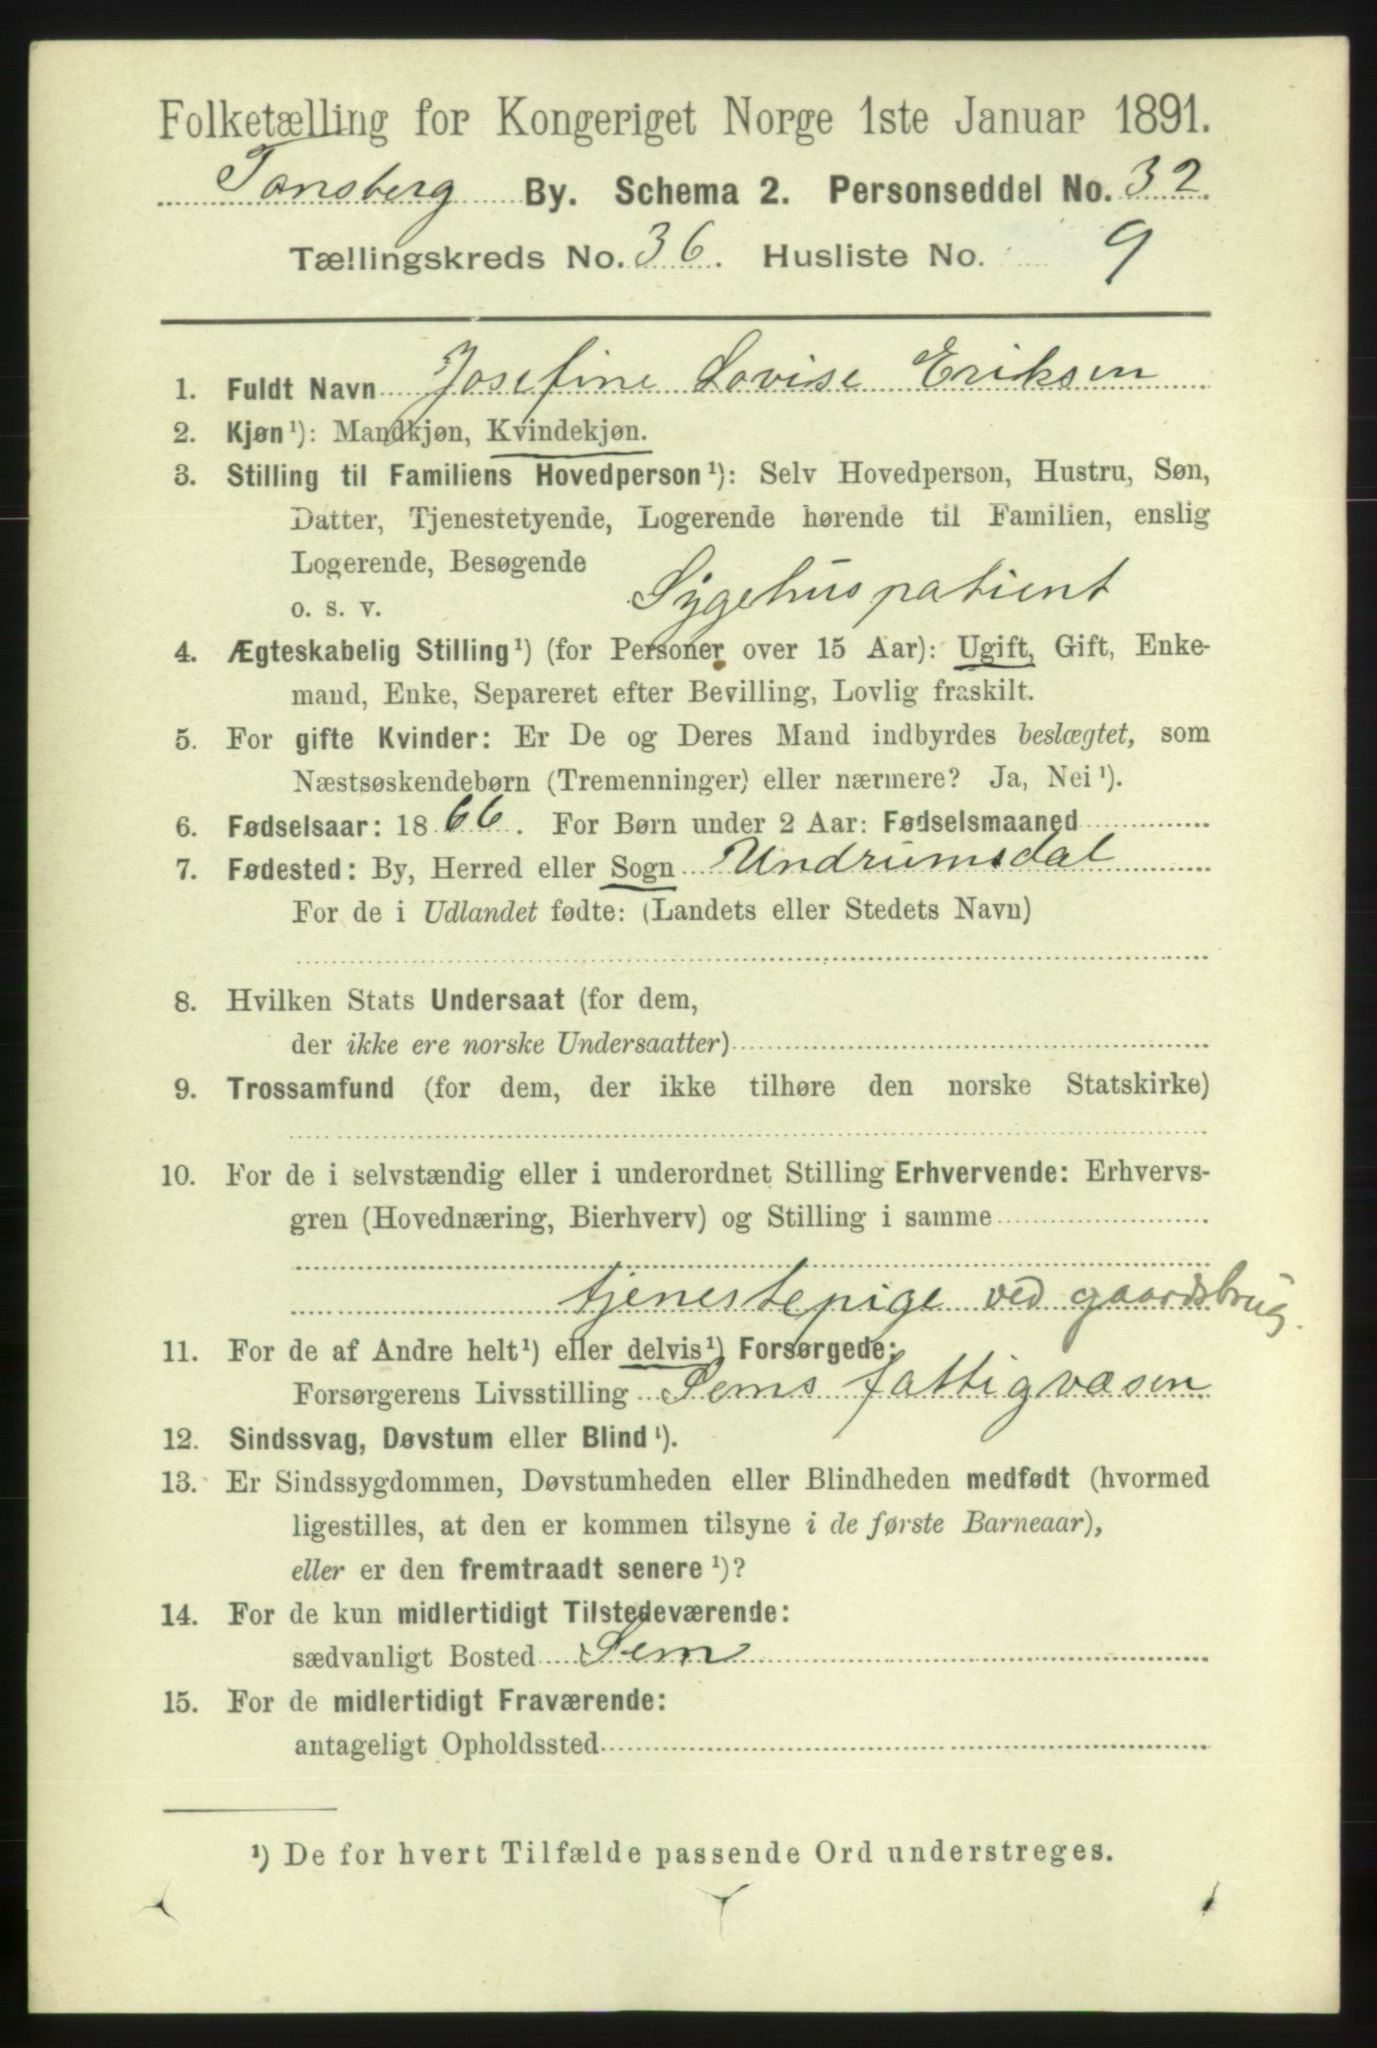 Folketælling for Kongeriget Norge 1ste Januar 1891.
Tønsberg By. Schema 2. Personseddel No. 32.
Tællingskreds No. 36. Husliste No. 9
1. Fuldt Navn Josefine Lovise Eriksen
2. Kjøn¹): Mandkjøn, Kvindekjøn.
3. Stilling til Familiens Hovedperson¹): Selv Hovedperson, Hustru, Søn,
Datter, Tjenestetyende, Logerende hørende til Familien, enslig
Logerende, Besøgende
o. s. v. Sygehuspatient
4. Ægteskabelig Stilling¹) (for Personer over 15 Aar): Ugift, Gift, Enke-
mand, Enke, Separeret efter Bevilling, Lovlig fraskilt.
5. For gifte Kvinder: Er De og Deres Mand indbyrdes beslægtet, som
Næstsøskendebørn (Tremenninger) eller nærmere? Ja, Nei¹).
6. Fødselsaar: 1866. For Børn under 2 Aar: Fødselsmaaned
7. Fødested: By, Herred eller Sogn Undrumsdal
For de i Udlandet fødte: (Landets eller Stedets Navn)
8. Hvilken Stats Undersaat (for dem,
der ikke ere norske Undersaatter)
9. Trossamfund (for dem, der ikke tilhøre den norske Statskirke)
10. For de i selvstændig eller i underordnet Stilling Erhvervende: Erhvervs-
gren (Hovednæring, Bierhverv) og Stilling i samme
tjenestepige ved gaardsbrug.
11. For de af Andre helt¹) eller delvis¹) Forsørgede:
Forsørgerens Livsstilling Sems fattigvæsen
12. Sindssvag, Døvstum eller Blind¹).
13. Er Sindssygdommen, Døvstumheden eller Blindheden medfødt (hvormed
ligestilles, at den er kommen tilsyne i de første Barneaar),
eller er den fremtraadt senere¹)?
14. For de kun midlertidigt Tilstedeværende:
sædvanligt Bosted Sem
15. For de midlertidigt Fraværende:
antageligt Opholdssted
¹) De for hvert Tilfælde passende Ord understreges.